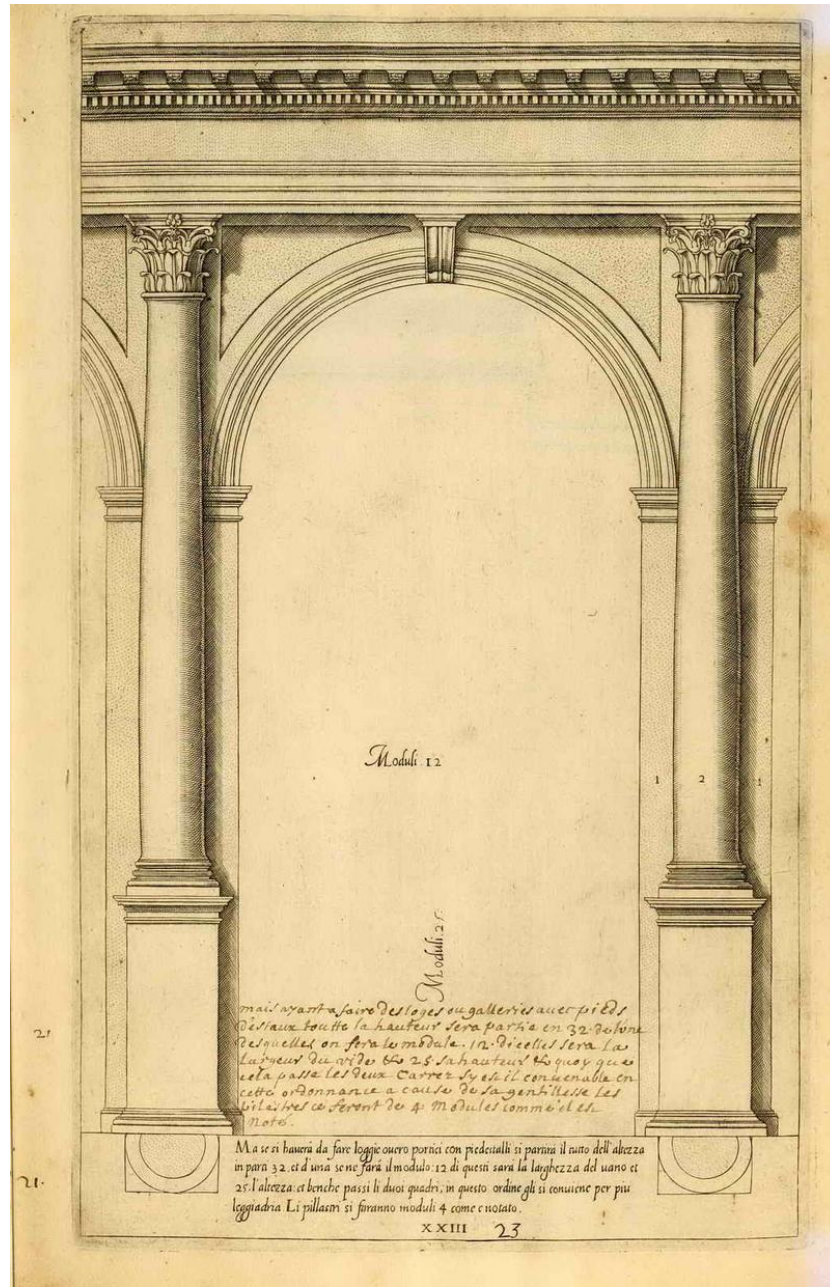 Moduli 12
1 2 1
Moduli. 25.
mais ayant a faire des loges ou galleries avec pieds
destaux toutte la hauteur sera partie en 32. de l'une
desquelles on fera le module. 12. dicelles sera la
Largeur du vide & 25 sa hauteur & quoy que
cela passe les deux Carrez sy est il convenable en
cette ordonnance a cause de sa gentillesse Les
pilastres ce feront de 4 Modules comme il est
Noté.
21
21.
Ma se si hauerà da fare loggie ouero portici con piedestalli si partirà il tutto dell'altezza
in parti 32. et d'una se ne farà il modulo: 12 di questi sarà la larghezza del uano et
25. l'altezza: et benche passi li duoi quadri, in questo ordine gli si conuiene per piu
leggiadria Li pillastri si faranno moduli 4 come e notato.
XXIII 23